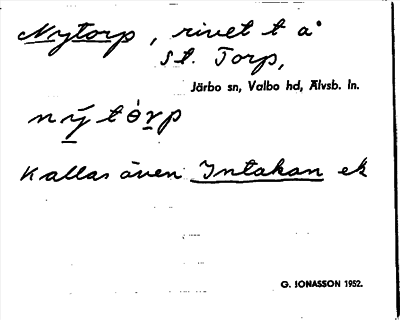 Nytorp, rivet t å
St. Torp,
Järbo sn, Valbo hd, Älvsb. ln.
nýtòrp
Kallas även Intakan ek
G. JONASSON 1952.